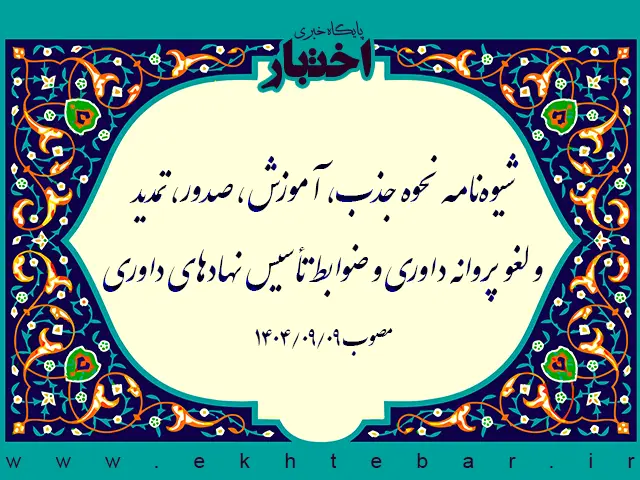 پایگاه خبری
اختبار
شیوه‌نامه نحوه جذب، آموزش، صدور، تمدید
و لغو پروانه داوری و ضوابط تأسیس نهادهای داوری
مصوب ۱۴۰۴/۰۹/۰۹
www.ekhtebar.ir